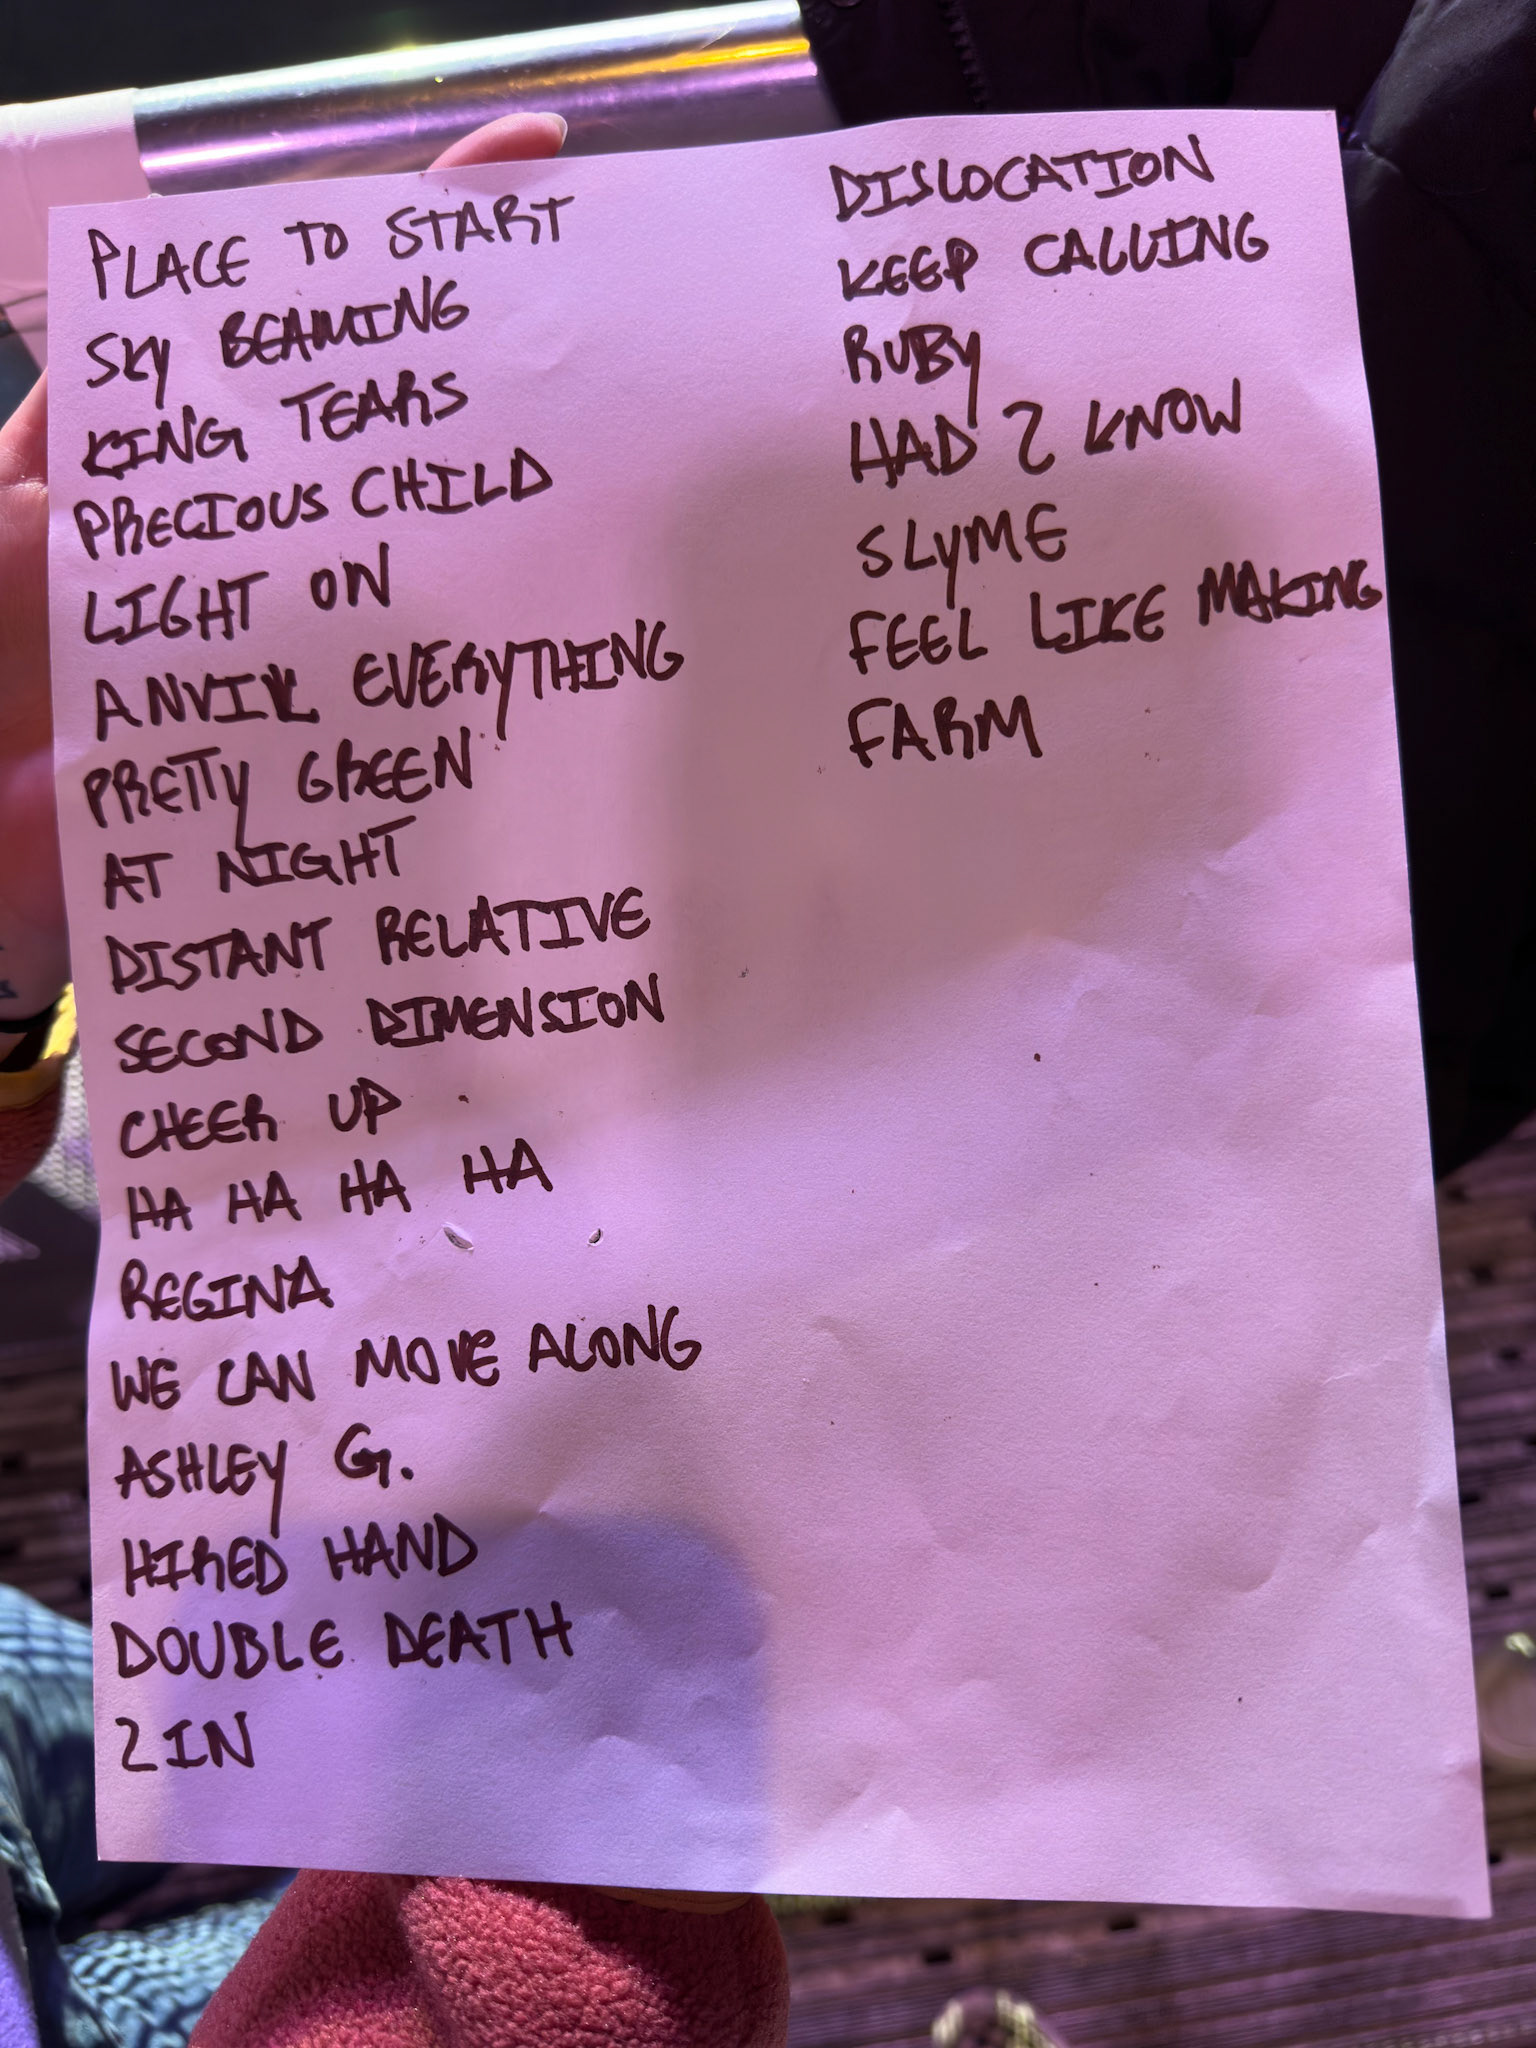 PLACE TO START
SKY BEAMING
KING TEARS
PRECIOUS CHILD
LIGHT ON
ANVIL EVERYTHING
PRETTY GREEN
AT NIGHT
DISTANT RELATIVE
SECOND DIMENSION
CHEER UP
HA HA HA HA
REGINA
WE CAN MOVE ALONG
ASHLEY G.
HIRED HAND
DOUBLE DEATH
2 IN
DISLOCATION
KEEP CALLING
RUBY
HAD 2 KNOW
SLYME
FEEL LIKE MAKING
FARM